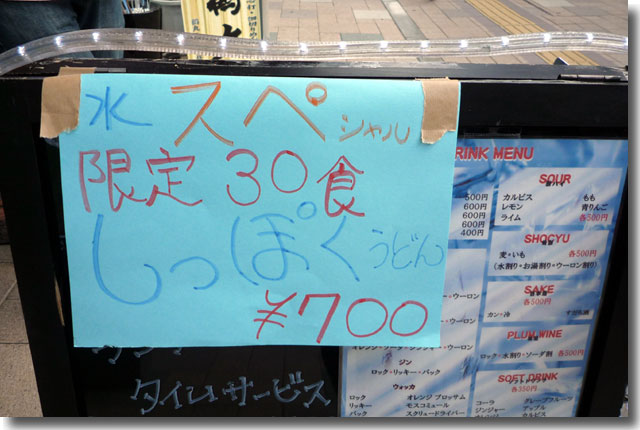 水 スペシャル
限定 30食
しっぽくうどん
¥700
タイムサービス
DRINK MENU
500円
600円
600円
600円
400円
SOUR
カルピス もも
レモン 青りんご
ライム 各500円
SHOCYU
麦・いも 各500円
(水割り・お湯割り・ウーロン割り)
SAKE
各500円
PLUM WINE
ロック・水割り・ソーダ割 各500円
SOFT DRINK
ソフトドリンク
各350円
コーラ グレープフルーツ
ジンジャー アップル
ウーロン カルピス
・ウーロン
・ウーロン
ジン
ロック・リッキー・バック
ウォッカ
ロック オレンジ ブロッサム
リッキー モスコミュール
バック スクリュードライバー